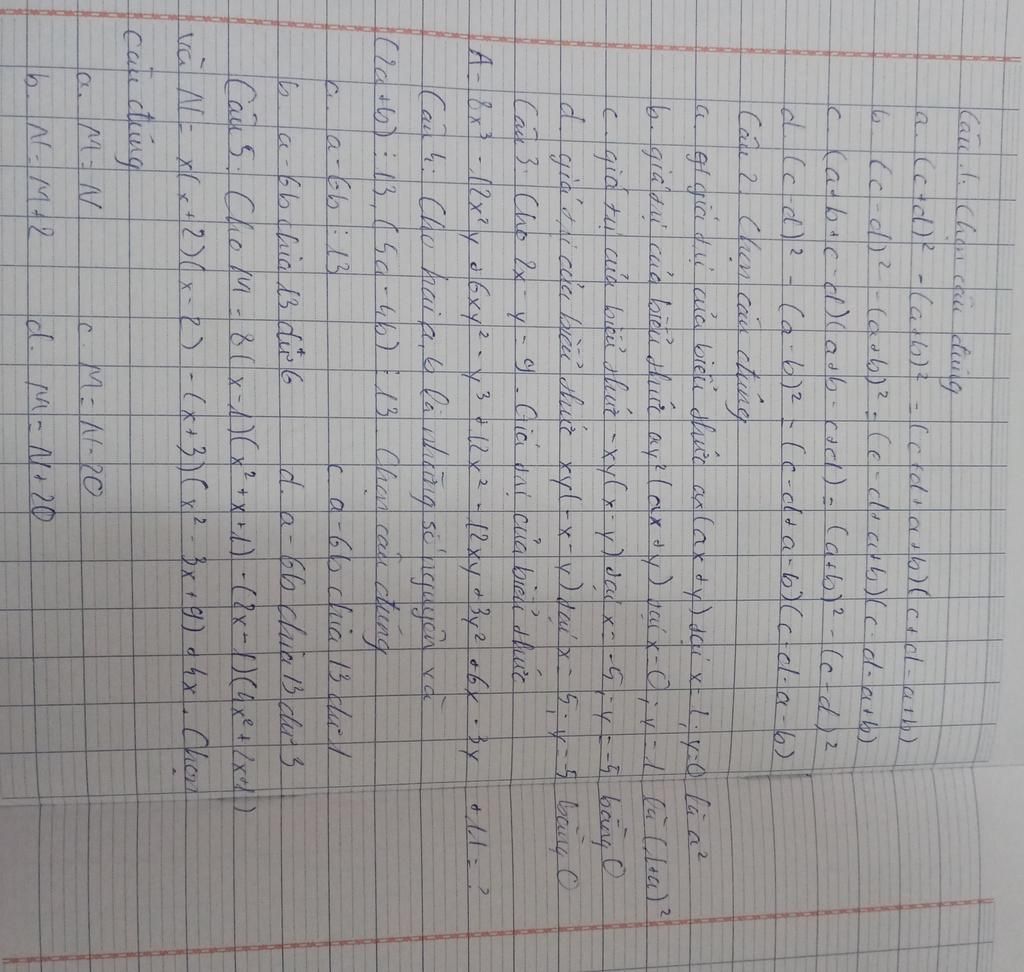 Câu 1. Chọn câu đúng
a. (c+d)² - (a+b)² = (c+d+a+b)(c+d-a+b)
b. (c-d)² - (a+b)² = (c-d+a+b)(c-d-a+b)
c. (a+b+c-d)(a+b-c+d) = (a+b)² - (c-d)²
d. (c-d)² - (a-b)² = (c-d+a-b)(c-d-a-b)
Câu 2. Chọn câu đúng
a. giá trị của biểu thức ax(ax+y) tại x=1; y=0 là a²
b. giá trị của biểu thức ay²(ax+y) tại x=0; y=1 là (1+a)²
c. giá trị của biểu thức -xy(x-y) tại x=-5; y=-5 bằng 0
d. giá trị của biểu thức xy(-x-y) tại x=5; y=-5 bằng 0
Câu 3: Cho 2x-y=9. Giá trị của biểu thức
A = 8x³ - 12x²y + 6xy² - y³ + 12x² - 12xy + 3y² + 6x - 3y + 11 = ?
Câu 4: Cho hai a, b là những số nguyên và
(2a+b) ⋮ 13, (5a-4b) ⋮ 13. Chọn câu đúng
a. a-6b ⋮ 13 c. a-6b chia 13 dư 1
b. a-6b chia 13 dư 6 d. a-6b chia 13 dư 3
Câu 5: Cho M = 8(x-1)(x²+x+1) - (2x-1)(4x²+2x+1)
và N = x(x+2)(x-2) - (x+3)(x²-3x+9) + 4x. Chọn
câu đúng
a. M = N c. M = N-20
b. N = M+2 d. M = N+20